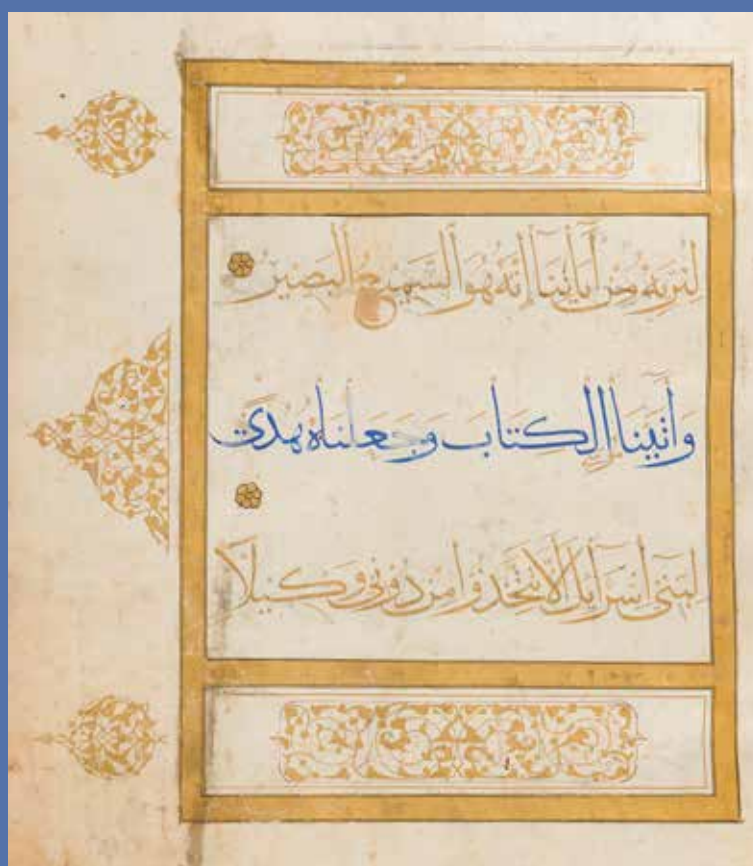 لِنُرِيَهُ مِنْ أٰيَاتِنَا إِنَّهُ هُوَ السَّمِيعُ الْبَصِيرُ
وَأٰتَيْنَا الْكِتَابَ وَجَعَلْنَاهُ هُدًى
لِبَنِي إِسْرَآيِلَ أَلَّا تَتَّخِذُوا مِنْ دُونِي وَكِيلًا